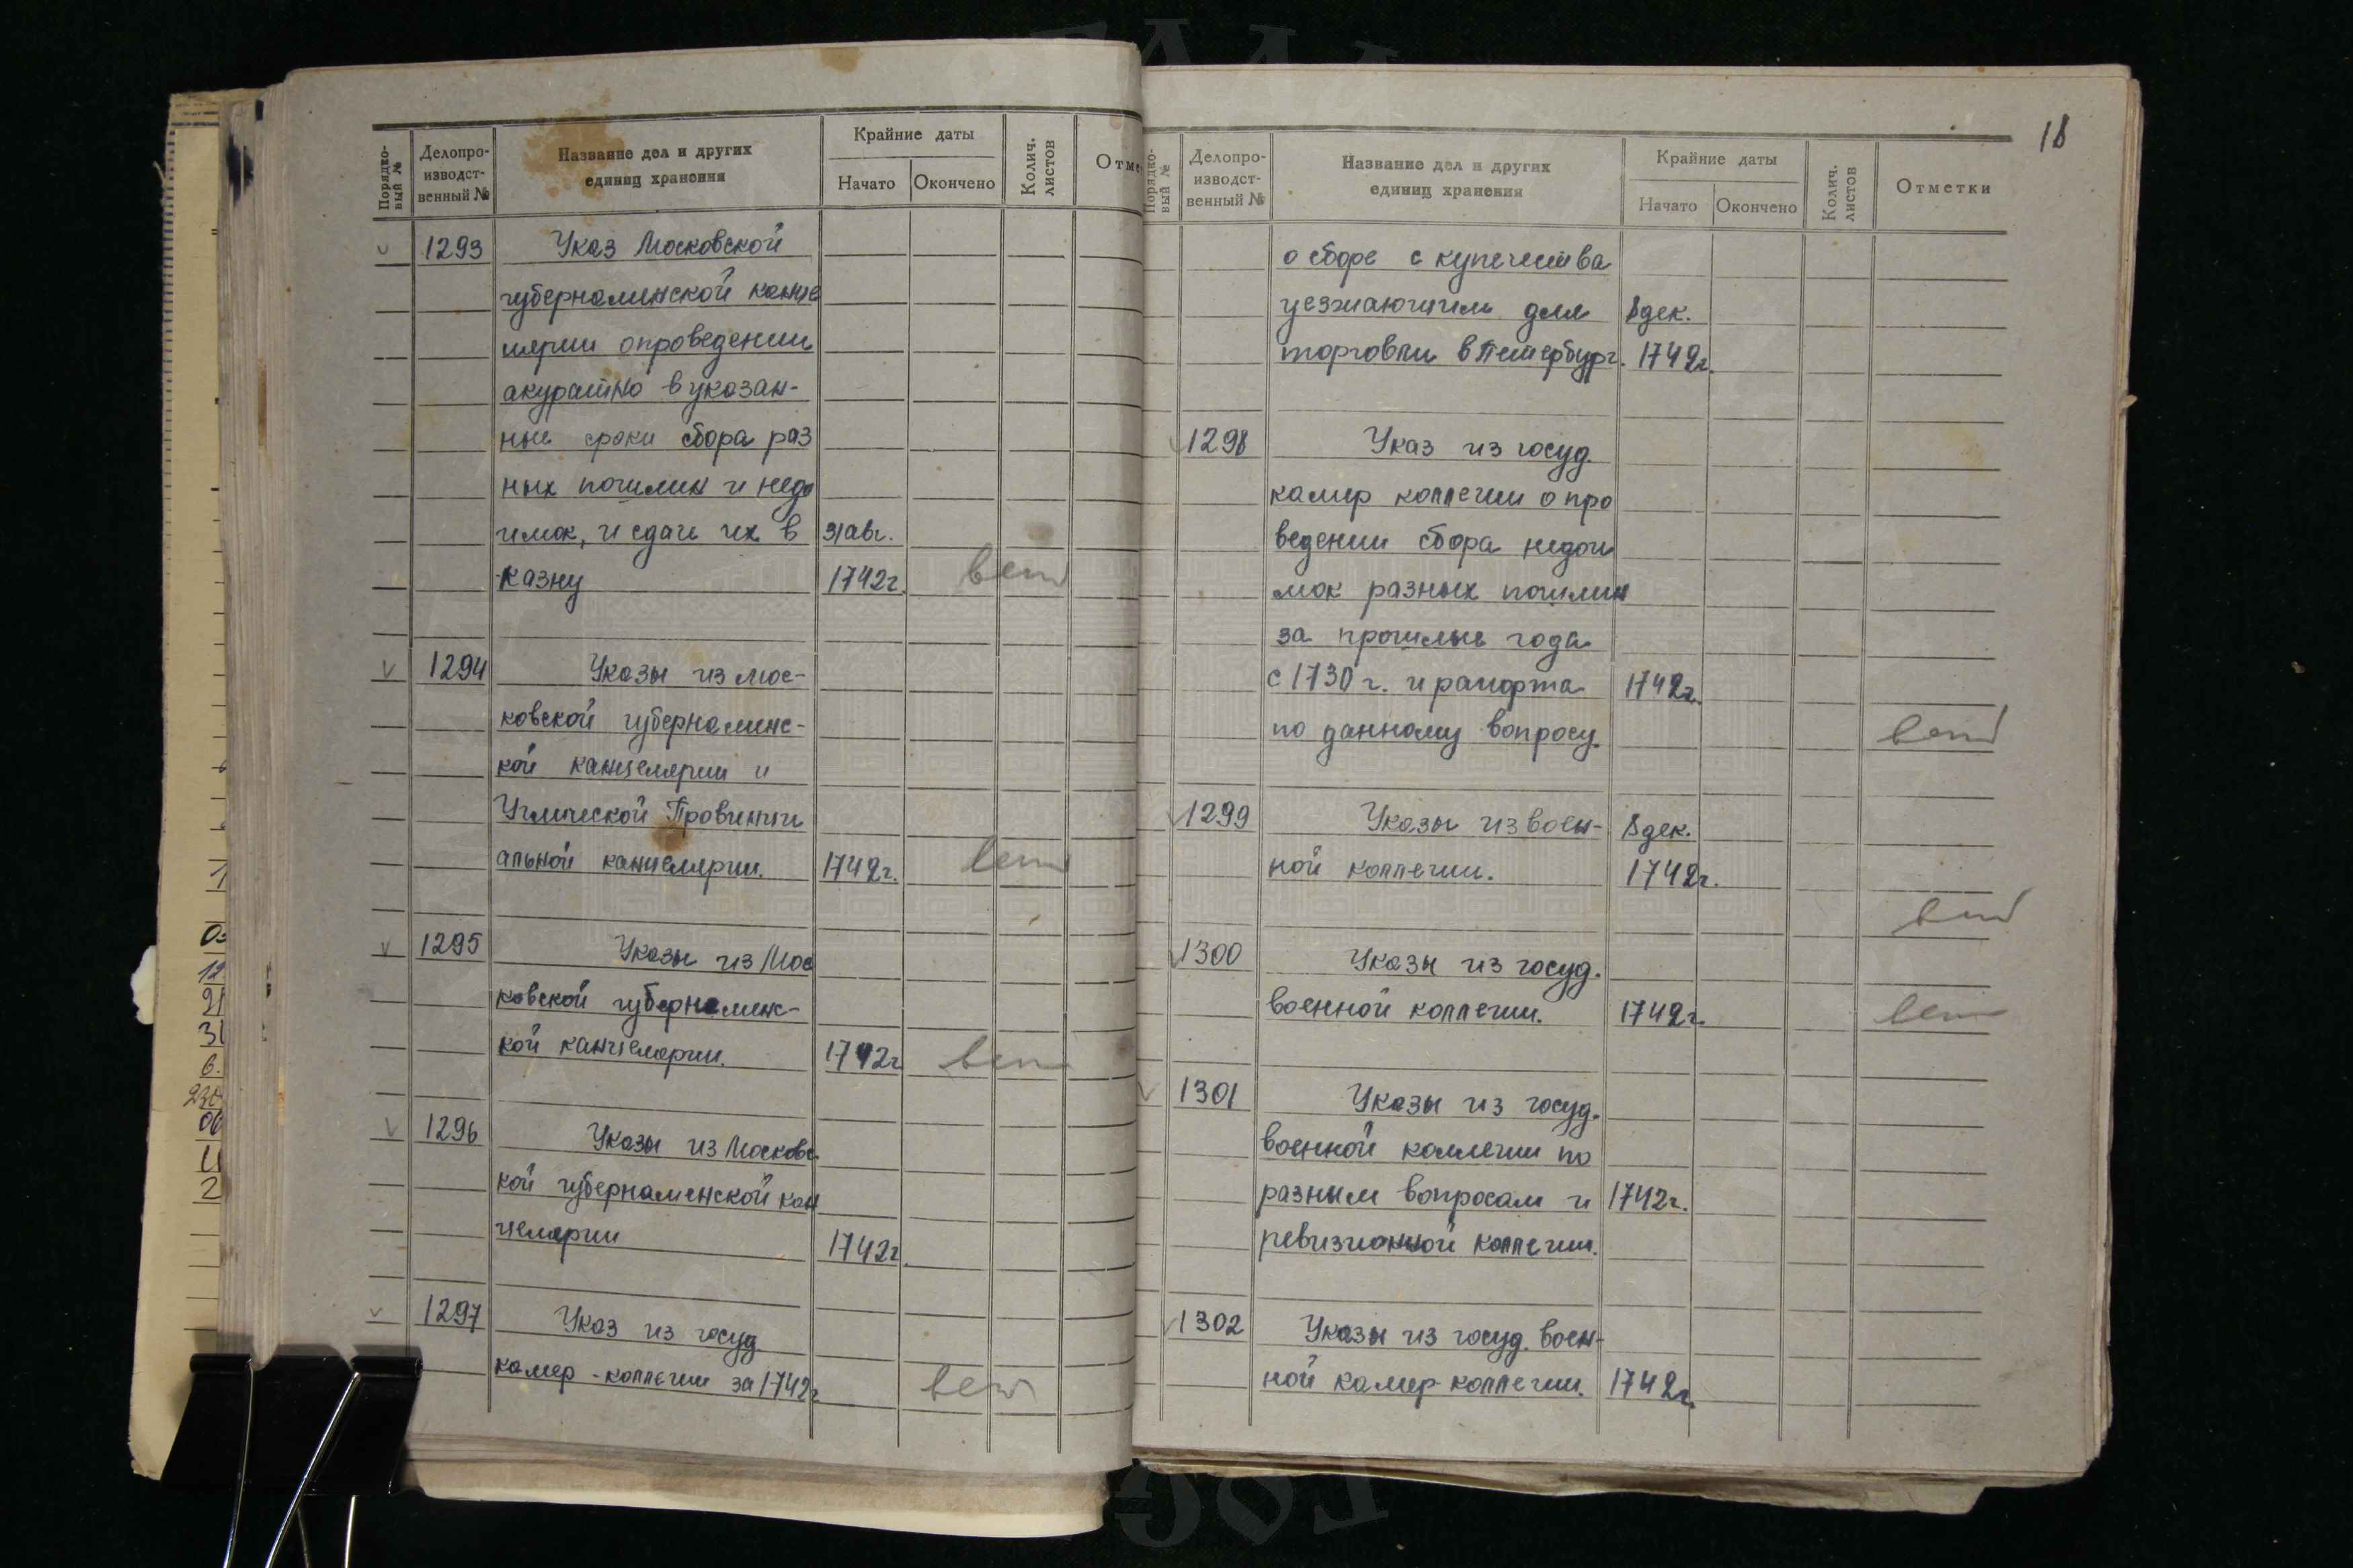 Порядко-
вый №
Делопро-
изводст-
венный №
Название дел и других
единиц хранения
Крайние даты
Начато
Окончено
Колич.
листов
Отме
1293
Указ Московской
губернаминской канце
лярии о проведении
акуратно в указан-
ные сроки сбора раз
ных пошлин и недо
имок, и сдачи их в 31 авг.
казну 1742г.
1294
Указы из мос-
ковской губернаминс-
кой канцелярии и
Углической Провинци
альной канцелярии. 1742г.
1295
Указы из Мос
ковской губернаминс-
кой канцелярии. 1742г
1296
Указы из Московс
кой губернаменской кан
целярии 1742г.
1297
Указ из госуд.
камер-коллегии за 1742г
18
Порядко-
вый №
Делопро-
изводст-
венный №
Название дел и других
единиц хранения
Крайние даты
Начато
Окончено
Колич.
листов
Отметки
о сборе с купечества
уезжающим для 8 дек.
торговли в Петербург. 1742г.
1298
Указ из госуд.
камер коллегии о про
ведении сбора недои
мок разных пошлин
за прошлые года
с 1730 г. и рапорта 1742г.
по данному вопросу.
1299
Указы из воен- 8 дек.
ной коллегии. 1742г.
1300
Указы из госуд.
военной коллегии. 1742г.
1301
Указы из госуд.
военной коллегии по
разным вопросам и 1742г.
ревизионной коллегии.
1302
Указы из госуд. воен-
ной камер-коллегии. 1742г.